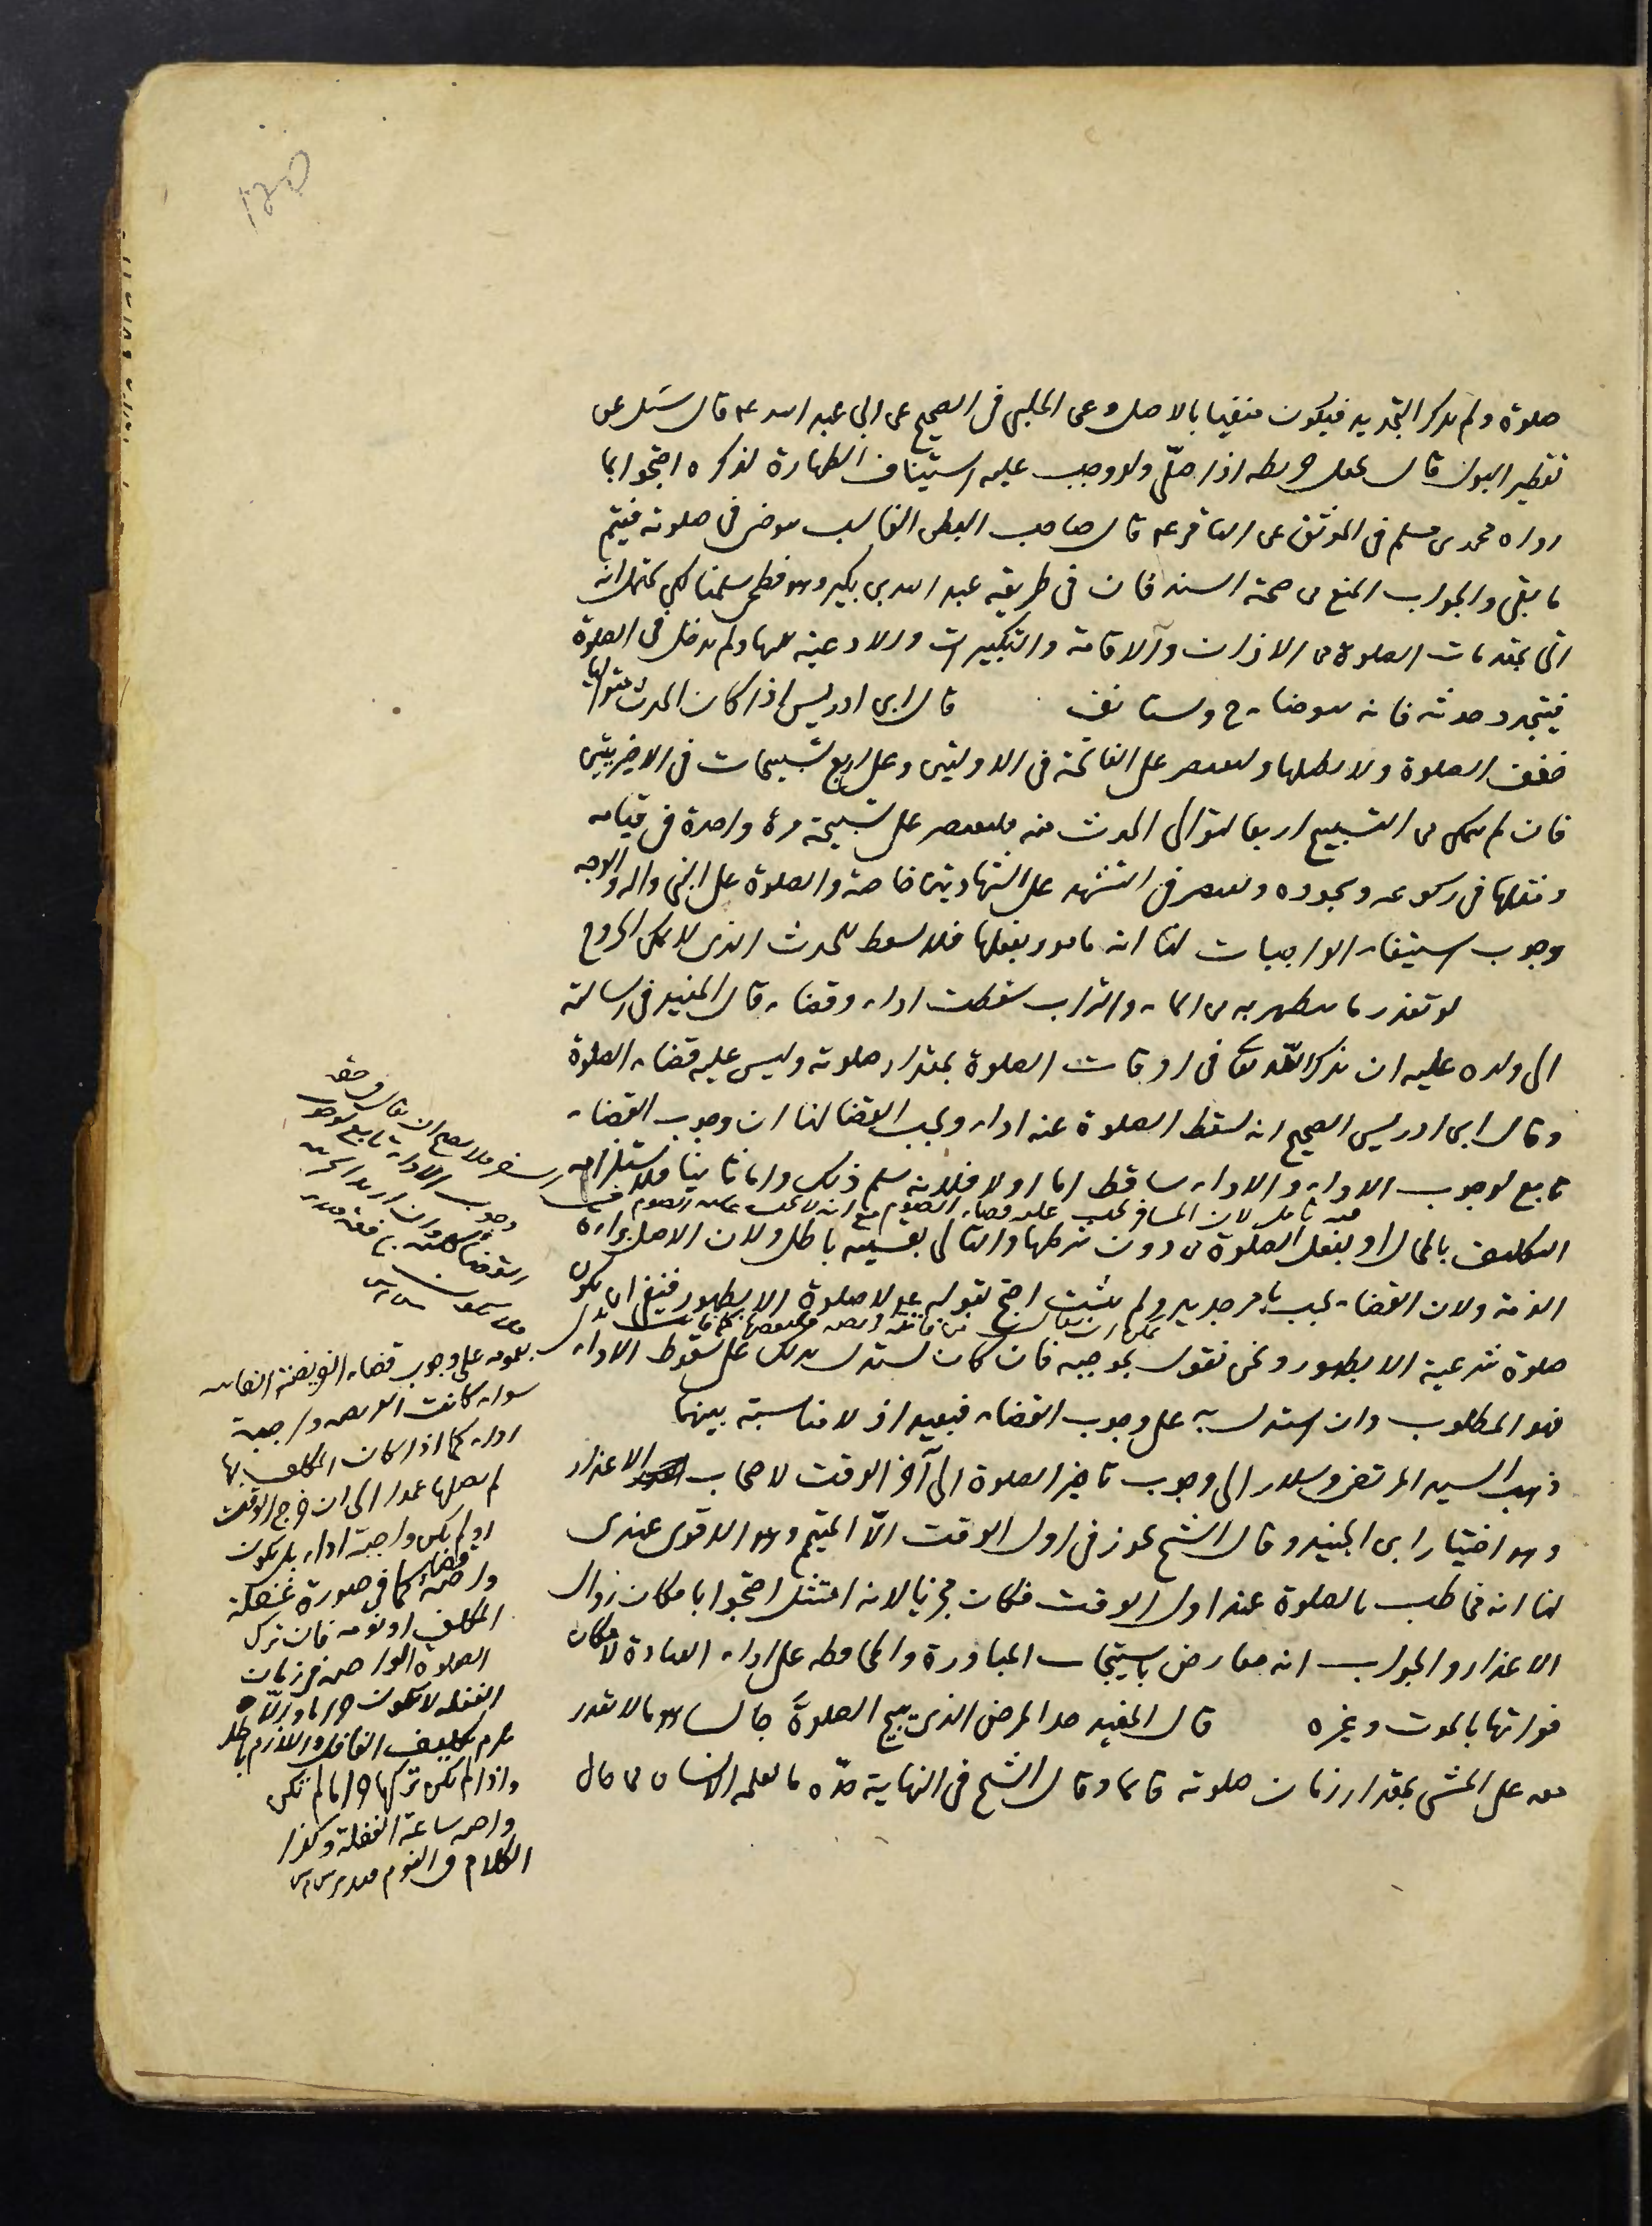 ١٢٥
صلوة ولم يذكر التجديد فيكون منفيا بالاصل وعن الحلبي فى الصحيح عن ابي عبد الله ع قال سئل عن
تقطير البول قال يجعل خريطه اذا صلّى ولو وجب عليه استيناف الطهارة لذكره احتجوا بما
رواه محمد بن مسلم فى الموثق عن الباقر ع قال صاحب البطن الغالب يتوضى فى صلوته فيتم
ما بقى والجواب المنع من صحة السند فان فى طريقه عبد الله بن بكير وهو فطحى سلمنا لكن يحتمل انه
اتى بمقدمات الصلوة من الاذان والاقامة والتكبيرات والادعية بينها ولم يدخل فى الصلوة
فيتجدد حدثه فانه يتوضا ح ويستانف قال ابن ادريس اذا كان الحدث متواليا
خفف الصلوة ولا يطيلها وليقتصر على الفاتحة فى الاوليتين وعلى اربع تسبيحات فى الاخيريتين
فان لم يتمكن من التسبيح اربعا لتوالى الحدث منه فليقتصر على تسبيحة مرة واحدة فى قيامه
ومثلها فى ركوعه وسجوده ويقتصر فى التشهد على الشهادتين خاصة والصلوة على النبى واله والوجه
وجوب استيفاء الواجبات لنا انه مامور بفعلها فلا يسقط للحدث الذى لا يمكن الخروج
لو تعذر ما يتطهر به من الماء والتراب سقطت اداء وقضاء قال المفيد فى رسالته
الى ولده عليه ان يذكر الله تعالى فى اوقات الصلوة بمقدار صلوته وليس عليه قضاء الصلوة
وقال ابن ادريس الصحيح انه يسقط الصلوة عنه اداء ويجب القضا لنا ان وجوب القضاء
تابع لوجوب الاداء والاداء ساقط اما اولا فلانه سلم ذلك واما ثانيا فلاستلزامه
فيه تامل لان المسافر يجب عليه قضاء الصوم مع انه لا يجب عليه الصوم
التكليف بالمحال او بفعل الصلوة من دون شرطها والتالى بقسميه باطل ولان الاصل براءة
الذمة ولان القضاء يجب بامر جديد ولم يثبت احتج بقوله ع لا صلوة الا بطهور فينبغى ان يكون
صلوة شرعية الا بطهور ونحن نقول بموجبه فان كان يستدل بذلك على سقوط الاداء
فهو المطلوب وان استدل به على وجوب القضاء فبعيد اذ لا مناسبة بينهما
ذهب السيد المرتضى وسلار الى وجوب تاخير الصلوة الى آخر الوقت لاصحاب الاعذار
وهو اختيار ابن الجنيد وقال الشيخ يجوز فى اول الوقت الّا المتيمم وهو الاقوى عندى
لنا انه مخاطب بالصلوة عند اول الوقت فكان مجزيا لانه امتثل احتجوا بامكان زوال
الاعذار والجواب انه معارض باستحباب المبادرة والمحافظه على اداء العبادة لامكان
فواتها بالموت وغيره قال المفيد حد المرض الذى يبيح الصلوة جالسا هو ما لا يقدر
معه على المشى بمقدار زمان صلوته قائما وقال الشيخ فى النهاية حدّه ما يعلمه الانسان من حال
فلا يصح ان يقال
وجوب الاداء تابع لوجوب
بعمومه على وجوب قضاء الفريضة الفائته
سواء كانت الفريضه واجبة
اداء كما اذا كان المكلف بها
لم يصلها عمدا الى ان خرج الوقت
او لم يكن واجبة اداء بل يكون
واجبة قضاء كما فى صورة غفلة
المكلف او نومه فان ترك
الصلوة الواجبه فى زمان
الغفله لا يكون حراما والّا
يلزم تكليف الغافل واللازم باطل
واذا لم يكن تركها حراما لم تكن
واجبه ساعة الغفلة وكذا
الكلام فى النوم